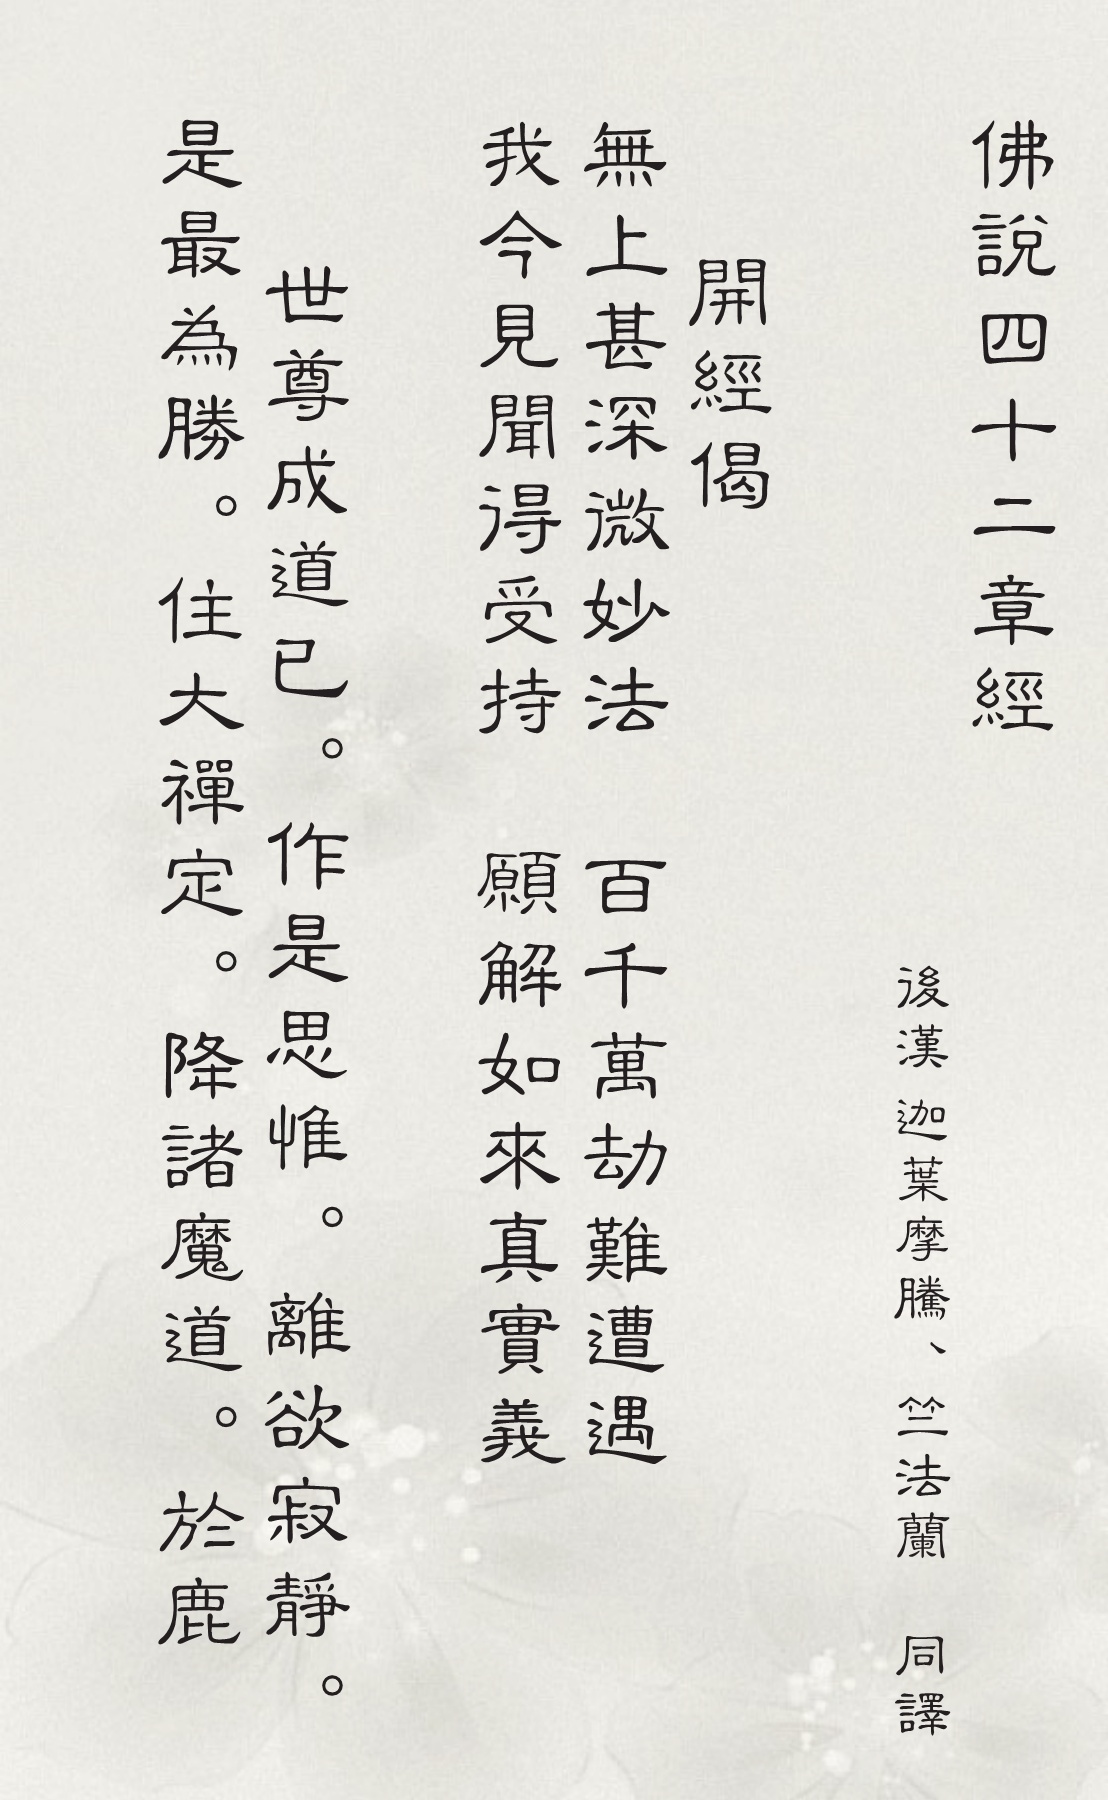 佛說四十二章經
後漢 迦葉摩騰、竺法蘭　同譯
開經偈
無上甚深微妙法　百千萬劫難遭遇
我今見聞得受持　願解如來真實義
世尊成道已。作是思惟。離欲寂靜。
是最為勝。住大禪定。降諸魔道。於鹿